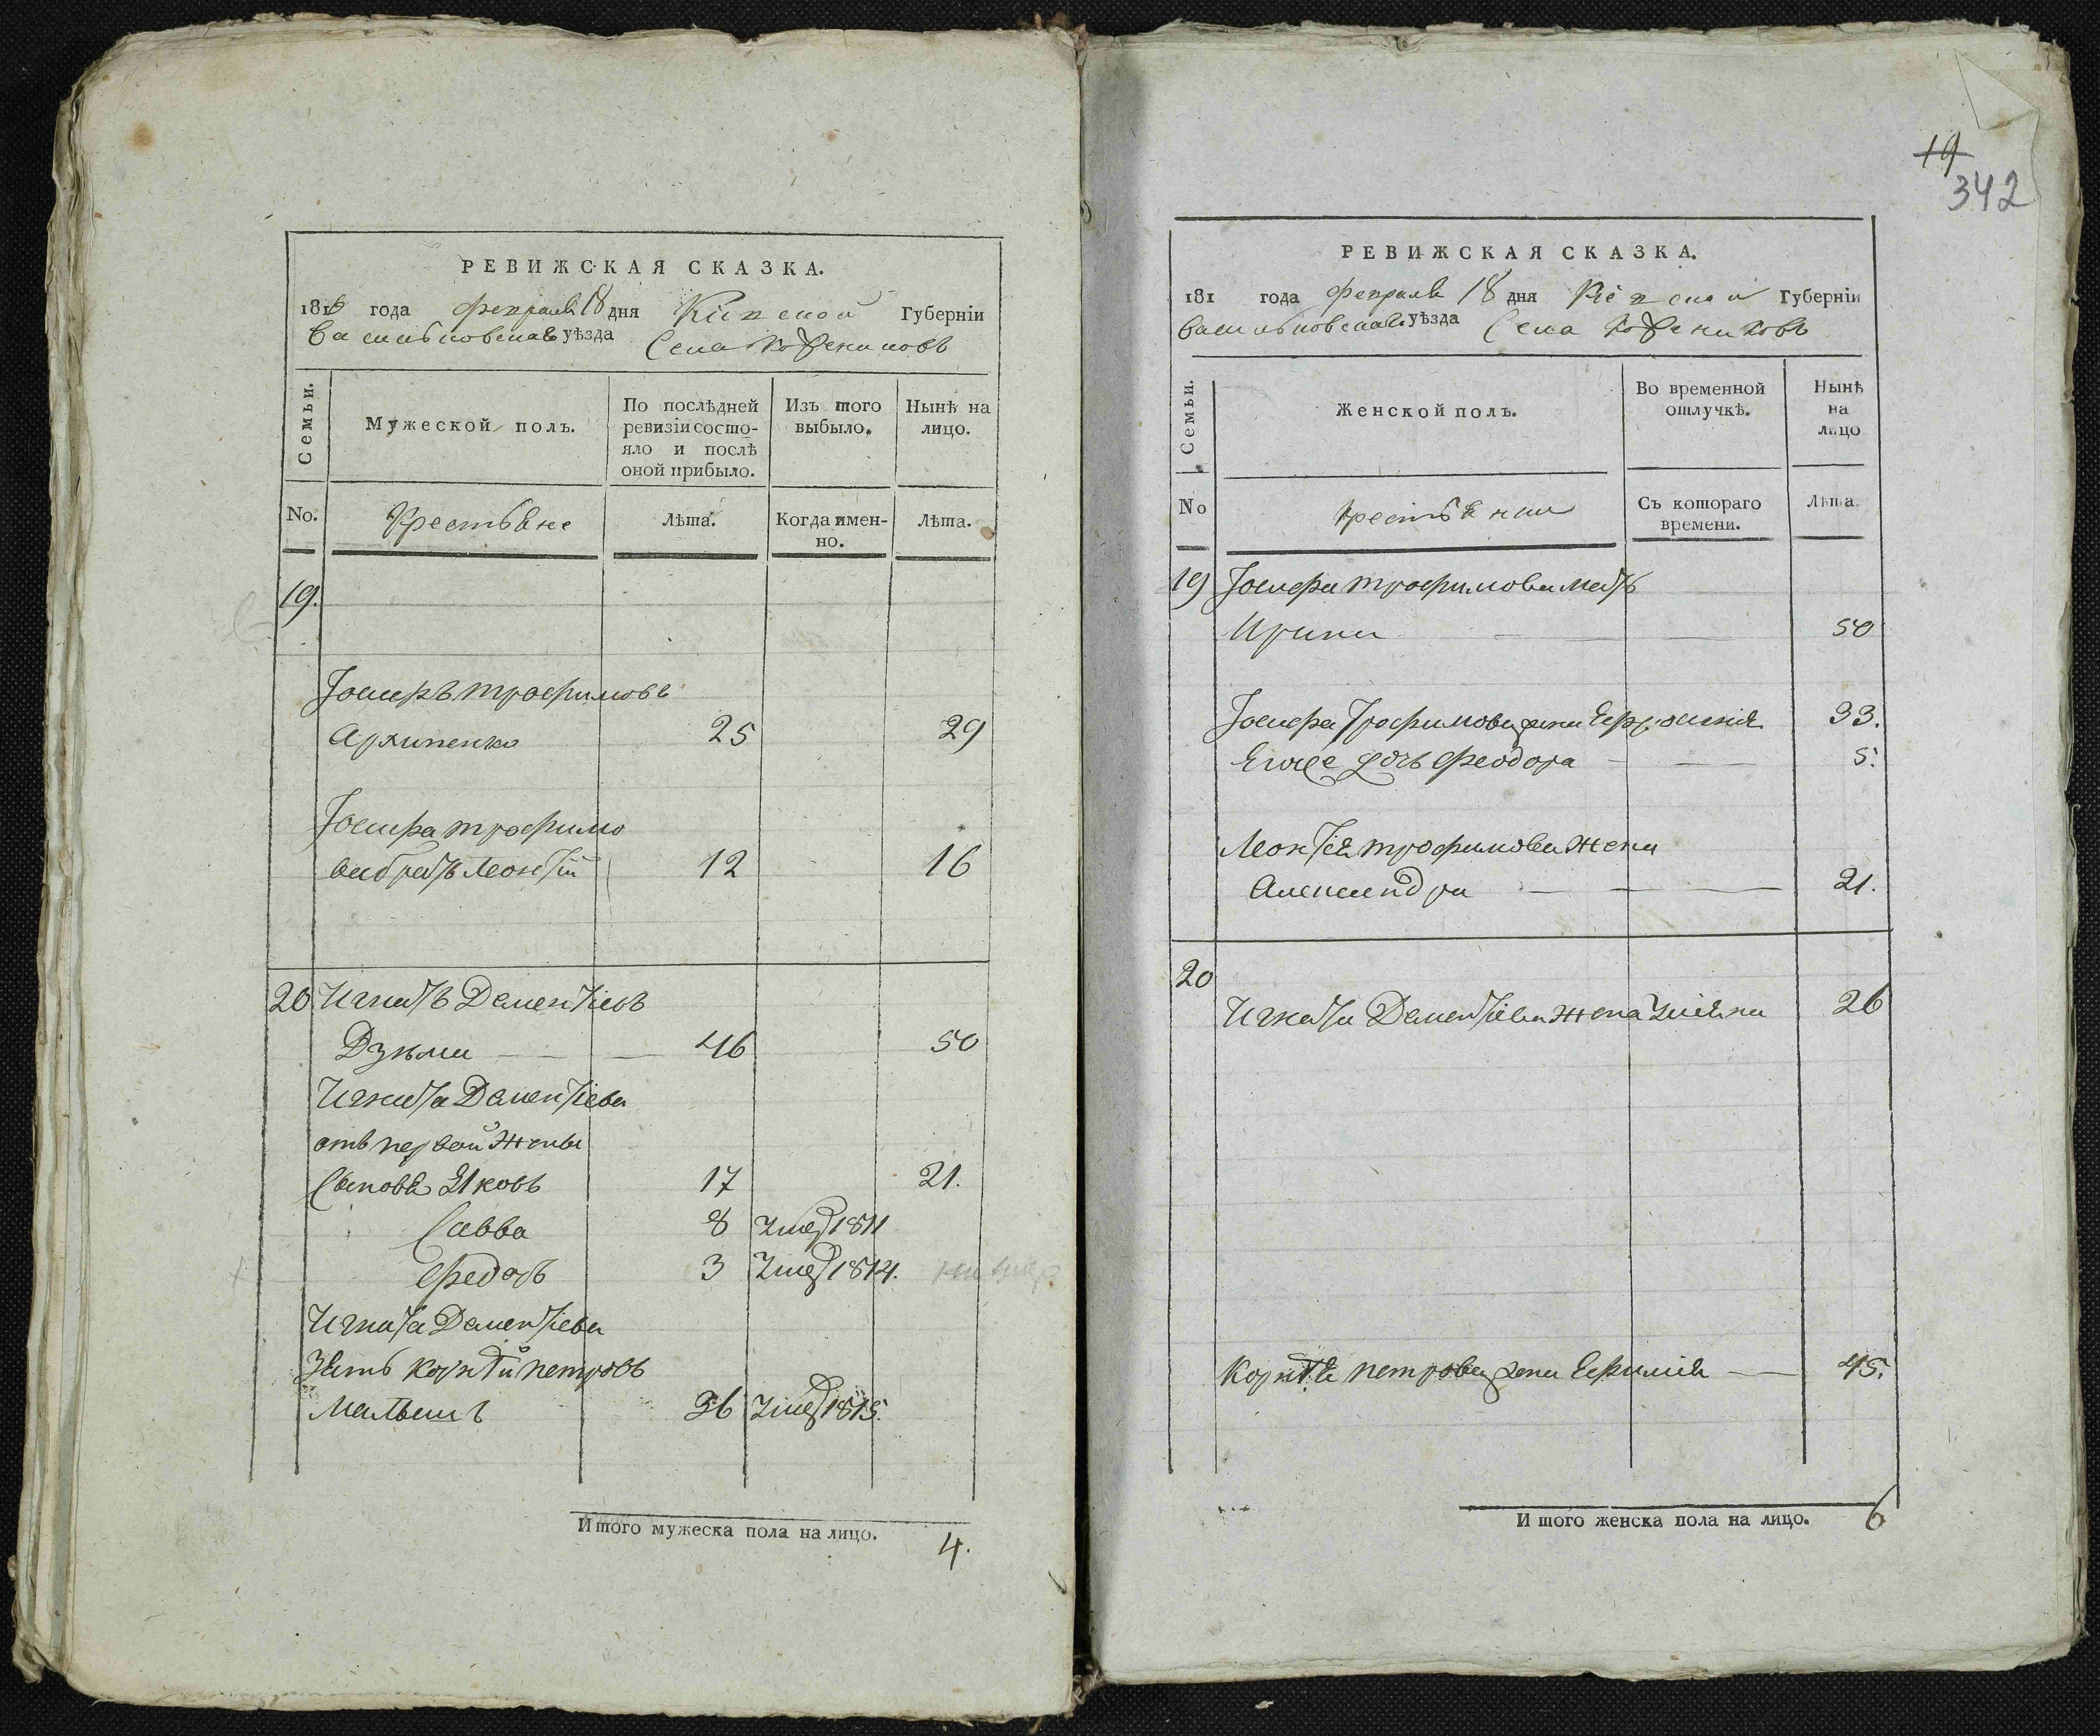 РЕВИЖСКАЯ СКАЗКА.
1816 года февраля 18 дня Кіевской Губерніи
Васильковскаго уѣзда Села
Семьи.
Мужеской полъ.
По послѣдней ревизіи состояло и послѣ оной прибыло.
Изъ того выбыло.
Нынѣ на лицо.
No.
Крестьяне
Лѣта.
Когда имен-
но.
Лѣта.
19.
Іосифъ Трофимовъ
Архипенко 25 29
Іосифа Трофимо
ва братъ Леонтій 12 16
20 Игнатъ Дементіевъ
Дзюма 46 50
Игната Дементіева
отъ первой жены
Сыновья Яковъ 17 21.
Савва 8 Умер 1811
Федоръ 3 Умер 1814.
Игната Дементіева
Зять Корнѣй Петровъ
Малышъ 36 Умер 1815.
Итого мужеска пола на лицо. 4.
19
342
РЕВИЖСКАЯ СКАЗКА.
181 года февраля 18 дня Кіевской Губерніи
Васильковскаго уѣзда Села
Семьи.
Женской полъ.
Во временной
отлучкѣ.
Нынѣ
на
лицо
No
Крестьянки
Съ котораго
времени.
Лѣта.
19 Іосифа Трофимова мать
Ирина 50
Іосифа Трофимова жена Ефросинія 33.
Его дочь Феодора 5.
Леонтія Трофимова жена
Александра 21.
20
Игната Дементіева жена Уліяна 26
Корнѣя Петрова жена Ефимія 45.
Итого женска пола на лицо. 6